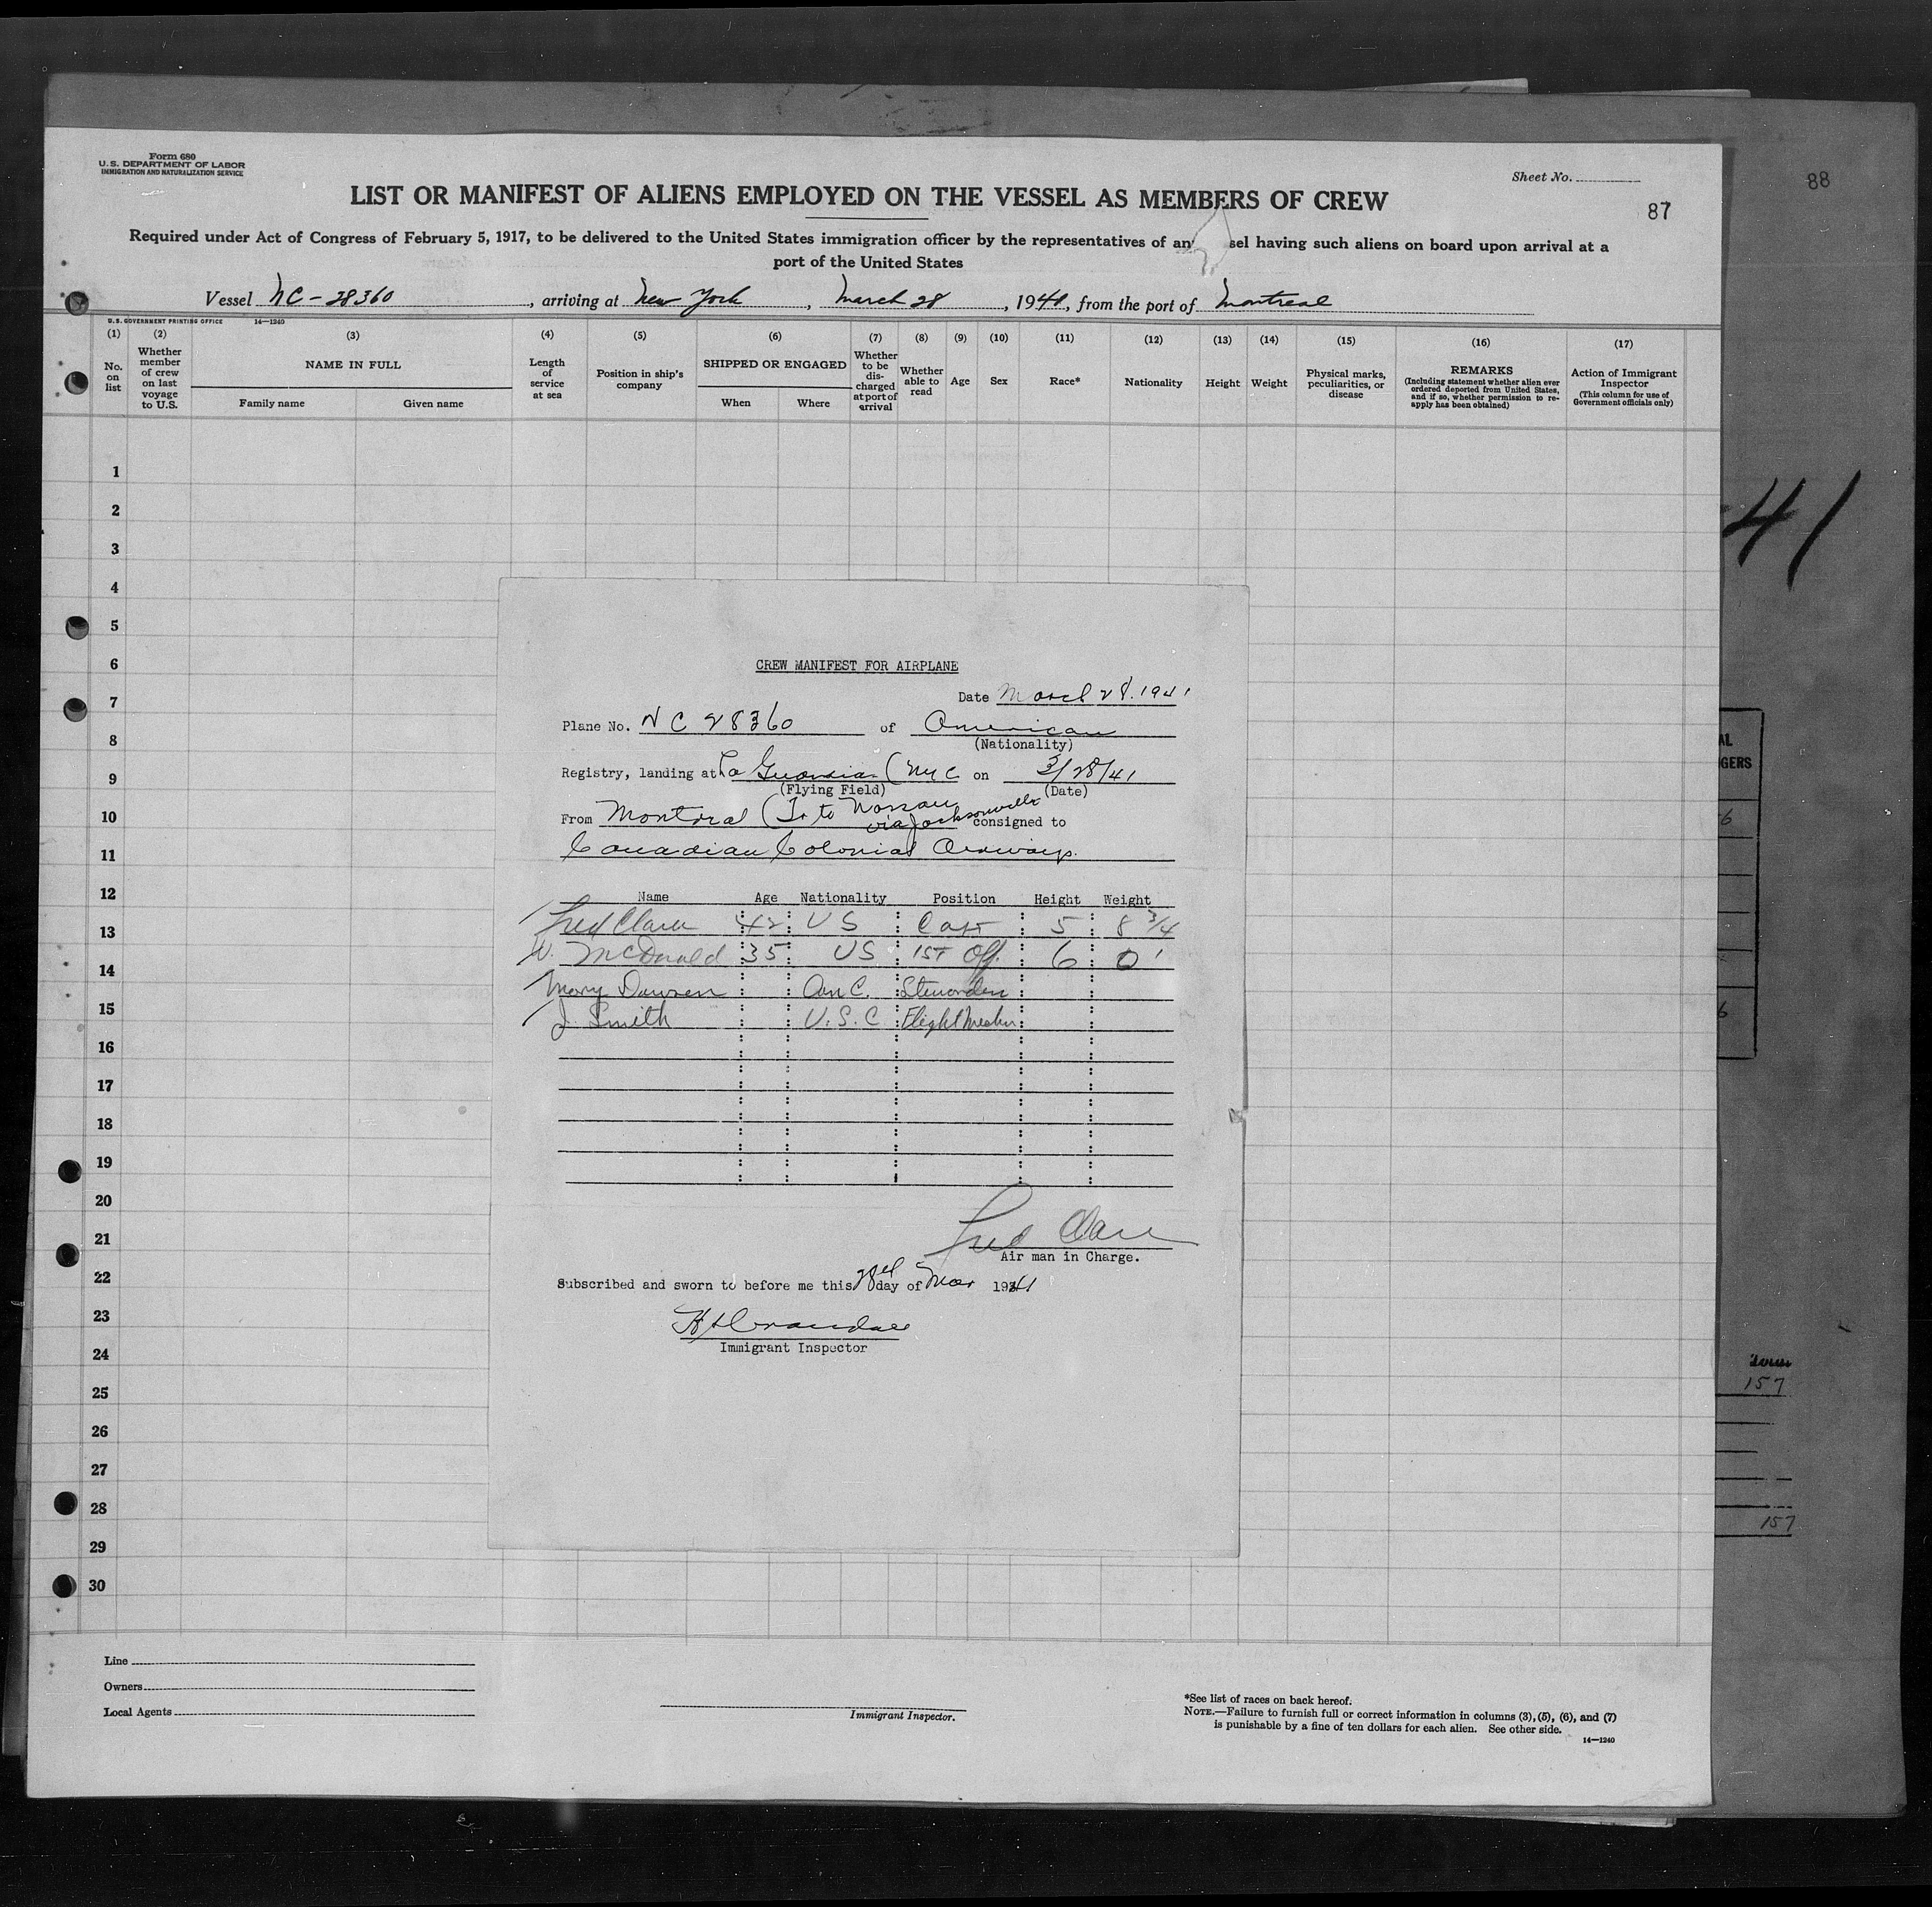 Form 680
U.S. DEPARTMENT OF LABOR
IMMIGRATION AND NATURALIZATION SERVICE
Sheet No.
88
LIST OR MANIFEST OF ALIENS EMPLOYED ON THE VESSEL AS MEMBERS OF CREW
87
Required under Act of Congress of February 5, 1917, to be delivered to the United States immigration officer by the representatives of an sel having such aliens on board upon arrival at a
port of the United States
Vessel NC-28360, arriving at New York, March 28, 1941, from the port of Montreal
U.S. GOVERNMENT PRINTING OFFICE 14—1240
(1) (2) (3) (4) (5) (6) (7) (8) (9) (10) (11) (12) (13) (14) (15) (16) (17)
No. on list
Whether member of crew on last voyage to U.S.
NAME IN FULL
Family name Given name
Length of service at sea
Position in ship's company
SHIPPED OR ENGAGED
When Where
Whether to be discharged at port of arrival
Whether able to read
Age
Sex
Race*
Nationality
Height
Weight
Physical marks, peculiarities, or disease
REMARKS
(Including statement whether alien ever ordered deported from United States, and if so, whether permission to reapply has been obtained)
Action of Immigrant Inspector
(This column for use of Government officials only)
1
2
3
4
5
6
7
8
9
10
11
12
13
14
15
16
17
18
19
20
21
22
23
24
25
26
27
28
29
30
41
CREW MANIFEST FOR AIRPLANE
Date March 28. 1941
Plane No. NC 28360 of American
(Nationality)
Registry, landing at La Guardia (NYC on 3/28/41
(Flying Field) (Date)
From Montreal (Tr to Nassau via Jacksonville consigned to
Canadian Colonial Airways.
Name Age Nationality Position Height Weight
Fred Clark 42 US Capt 5 8 3/4
W. McDonald 35 US 1ST Off. 6 0'
Mary Dawsen Am C. Stewardess
J. Smith U.S.C
Fred Clark
Air man in Charge.
Subscribed and sworn to before me this 28th day of Mar 1941
Immigrant Inspector
AL
GERS
6
6
157
157
Line
Owners
Local Agents
Immigrant Inspector.
*See list of races on back hereof.
NOTE.—Failure to furnish full or correct information in columns (3), (5), (6), and (7)
is punishable by a fine of ten dollars for each alien. See other side.
14—1240